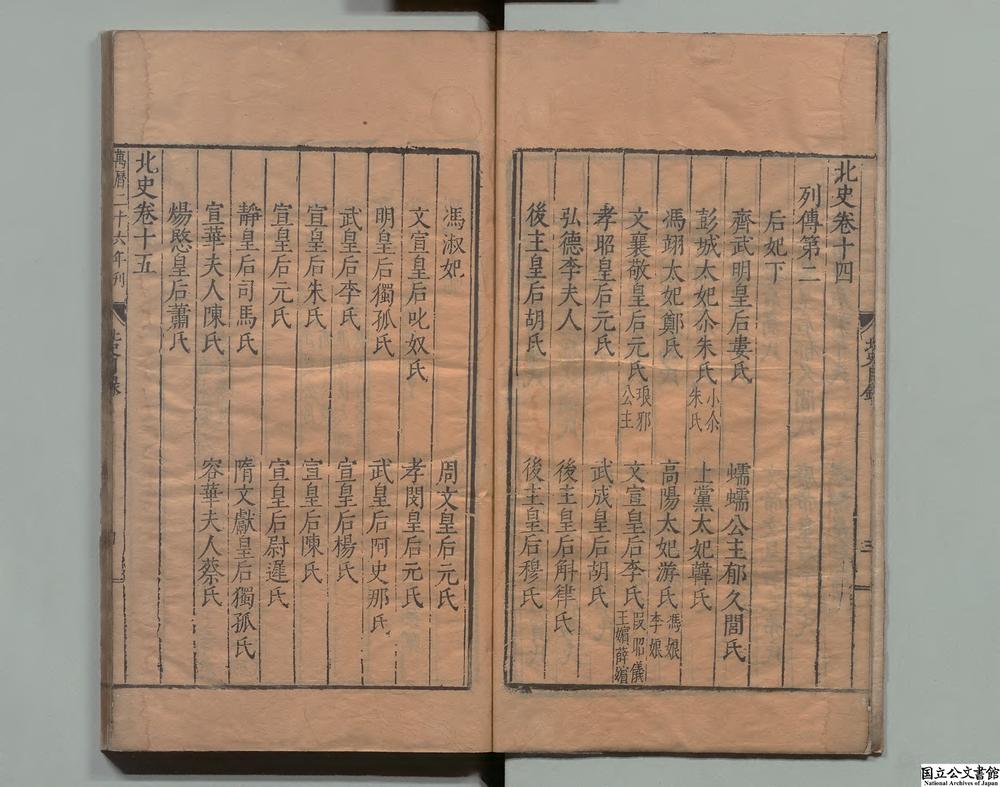 北史卷十四
列傳第二
后妃下
齊武明皇后婁氏　蠕蠕公主郁久閭氏
彭城太妃尒朱氏小尒朱氏　上黨太妃韓氏
馮翊太妃鄭氏　高陽太妃游氏馮娘李娘
文襄敬皇后元氏琅邪公主　文宣皇后李氏段昭儀王嬪薛嬪
孝昭皇后元氏　武成皇后胡氏
弘德李夫人　後主皇后斛律氏
後主皇后胡氏　後主皇后穆氏
馮淑妃　周文皇后元氏
文宣皇后叱奴氏　孝閔皇后元氏
明皇后獨孤氏　武皇后阿史那氏
武皇后李氏　宣皇后楊氏
宣皇后朱氏　宣皇后陳氏
宣皇后元氏　宣皇后尉遲氏
靜皇后司馬氏　隋文獻皇后獨孤氏
宣華夫人陳氏　容華夫人蔡氏
煬愍皇后蕭氏
北史卷十五
萬曆二十六年刊
北史目錄
三
国立公文書館
National Archives of Japan